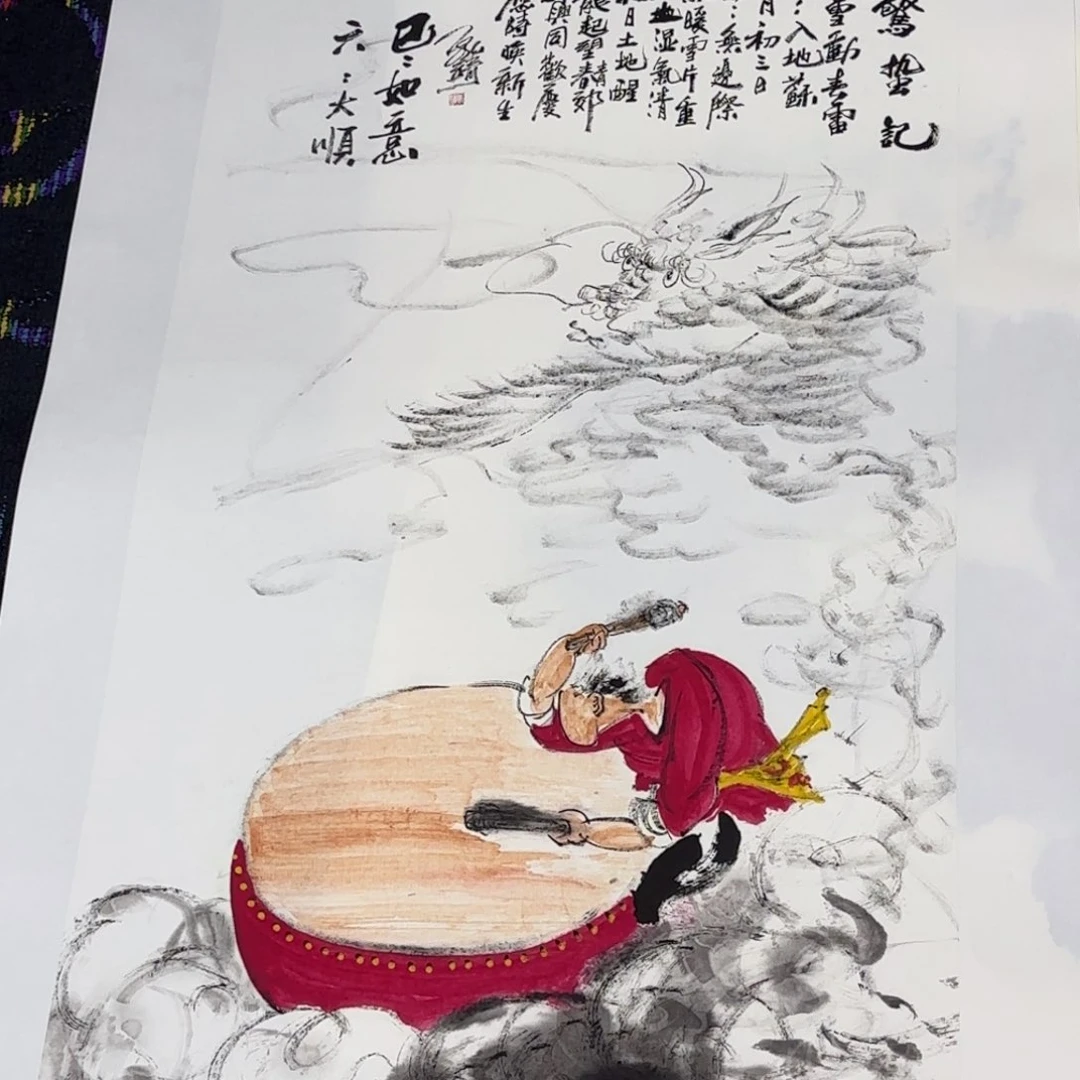 驚蛰記
雪動春雷
:入地蘇
月初三日
:無邊際
暖雪片重
地湿氣清
日土地醒
起望春郊
興同歡慶
應時喚新生
巳:如意
六:大順